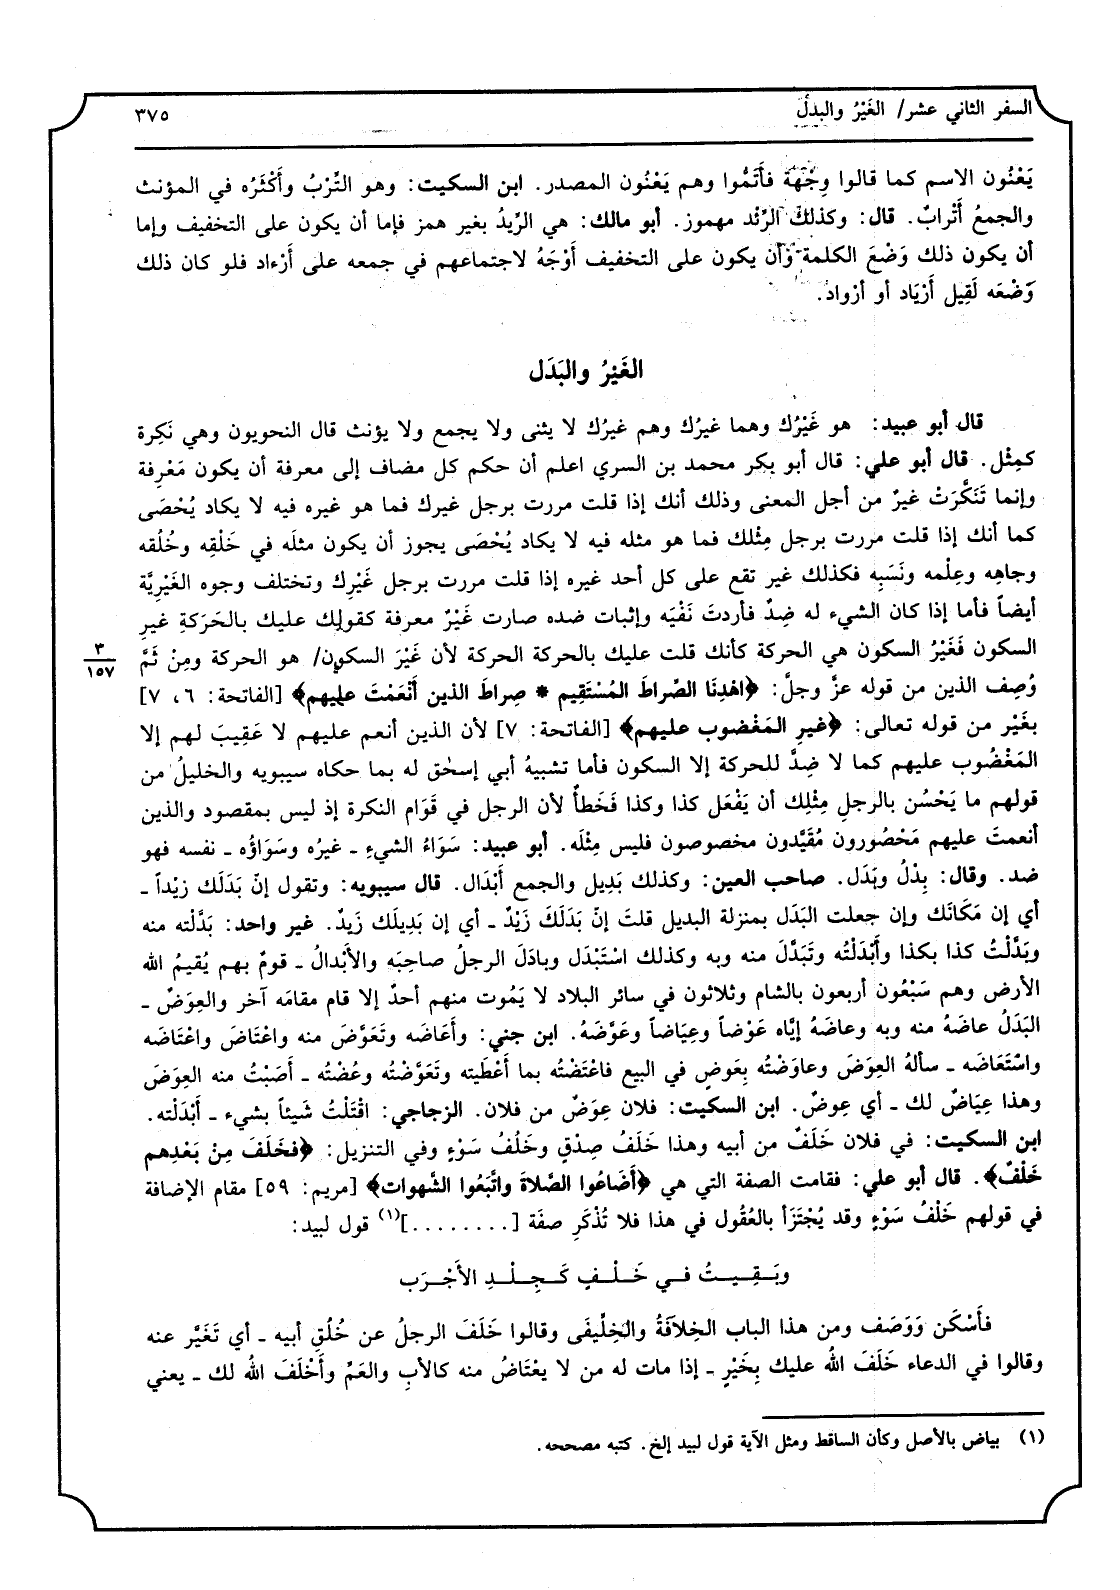 السفر الثاني عشر/ الغَيْرُ والبدلُ
٣٧٥
يَعْنُون الاسم كما قالوا وِجْهَة فأَتَمُّوا وهم يَعْنُون المصدر. ابن السكيت: وهو التِّرْبُ وأَكْثَرُه في المؤنث
والجمعُ أَتْرابٌ. قال: وكذلك الرِّئْد مهموز. أبو مالك: هي الرِّيدُ بغير همز فإما أن يكون على التخفيف وإما
أن يكون ذلك وَضْعَ الكلمة وَأن يكون على التخفيف أَوْجَهُ لاجتماعهم في جمعه على أَرْءاد فلو كان ذلك
وَضْعَه لَقِيل أَرْيَاد أو أرْواد.
الغَيْرُ والبَدَل
قال أبو عبيد: هو غَيْرُك وهما غيرُك وهم غيرُك لا يثنى ولا يجمع ولا يؤنث قال النحويون وهي نَكِرة
كمِثْل. قال أبو علي: قال أبو بكر محمد بن السري اعلم أن حكم كل مضاف إلى معرفة أن يكون مَعْرِفة
وإنما تَنَكَّرَتْ غيرٌ من أجل المعنى وذلك أنك إذا قلت مررت برجل غيرك فما هو غيره فيه لا يكاد يُحْصَى
كما أنك إذا قلت مررت برجل مِثْلك فما هو مثله فيه لا يكاد يُحْصَى يجوز أن يكون مثلَه في خَلْقِه وخُلُقه
وجاهِه وعِلْمه ونَسَبِه فكذلك غير تقع على كل أحد غيره إذا قلت مررت برجل غَيْرِك وتختلف وجوه الغَيْرِيَّة
أيضاً فأما إذا كان الشيء له ضِدٌ فأردتَ نَفْيَه وإثبات ضده صارت غَيْرٌ معرفة كقولك عليك بالحَرَكةِ غيرِ
السكون فَغَيْرُ السكون هي الحركة كأنك قلت عليك بالحركة الحركة لأن غَيْرَ السكون/ هو الحركة ومِنْ ثَمَّ
٣
١٥٧
وُصِف الذين من قوله عزَّ وجلَّ: ﴿اهْدِنَا الصِّراطَ المُسْتَقِيم * صِراطَ الذين أَنْعَمْتَ عليهم﴾ [الفاتحة: ٦، ٧]
بغَيْر من قوله تعالى: ﴿غيرِ المَغْضوب عليهم﴾ [الفاتحة: ٧] لأن الذين أنعم عليهم لا عَقِيبَ لهم إلا
المَغْضُوب عليهم كما لا ضِدَّ للحركة إلا السكون فأما تشبيهُ أبي إسحٰق له بما حكاه سيبويه والخليلُ من
قولهم ما يَحْسُن بالرجلِ مِثْلِك أن يَفْعَل كذا وكذا فَخَطأٌ لأن الرجل في قَوَام النكرة إذ ليس بمقصود والذين
أنعمتَ عليهم مَحْصُورون مُقَيَّدون مخصوصون فليس مِثْلَه. أبو عبيد: سَوَاءُ الشيءِ ـ غيرُه وسَوَاؤُه ـ نفسه فهو
ضد. وقال: بِدْلٌ وبَدَل. صاحب العين: وكذلك بَدِيل والجمع أَبْدَال. قال سيبويه: وتقول إنّ بَدَلَك زيْداً ـ
أي إن مَكَانَك وإن جعلت البَدَل بمنزلة البديل قلتَ إنّ بَدَلَكَ زَيْدٌ ـ أي إن بَدِيلَك زَيدٌ. غير واحد: بَدَّلْته منه
وبَدَّلْتُ كذا بكذا وأَبْدَلْتُه وتَبَدَّلَ منه وبه وكذلك اسْتَبْدَل وبادَلَ الرجلُ صاحبَه والأَبْدالُ ـ قومٌ بهم يُقيمُ الله
الأرض وهم سَبْعُون أربعون بالشام وثلاثون في سائر البلاد لا يَمُوت منهم أحدٌ إلا قام مقامَه آخر والعِوَضُ ـ
البَدَلُ عاضَهُ منه وبه وعاضَهُ إيَّاه عَوْضاً وعِيَاضاً وعَوَّضَهُ. ابن جني: وأَعَاضَه وتَعَوَّضَ منه واعْتَاضَ واعْتَاضَه
واسْتَعَاضَه ـ سألهُ العِوَضَ وعاوَضْتُه بِعَوضٍ في البيع فاعْتَضْتُه بما أَعْطَيته وتَعَوَّضْتُه وعُضْتُه ـ أَصَبْتُ منه العِوَضَ
وهذا عِيَاضٌ لك ـ أي عِوضٌ. ابن السكيت: فلان عِوَضٌ من فلان. الزجاجي: اقْتَلْتُ شَيئاً بشيء ـ أَبْدَلْته.
ابن السكيت: في فلان خَلَفٌ من أبيه وهذا خَلَفُ صِدْقٍ وخَلُفُ سَوْءٍ وفي التنزيل: ﴿فخَلَفَ مِنْ بَعْدِهم
خَلْفٌ﴾. قال أبو علي: فقامت الصفة التي هي ﴿أَضَاعُوا الصَّلاةَ واتَّبَعُوا الشَّهوات﴾ [مريم: ٥٩] مقام الإضافة
في قولهم خَلْفُ سَوْءٍ وقد يُجْتَزَأ بالعُقُول في هذا فلا تُذْكَرِ صفَة [........](١) قول لبيد:
وبَـقِـيـتُ فـي خَـلْـفٍ كَـجِـلْـدِ الأَجْـرَب
فأَسْكَن وَوَصَف ومن هذا الباب الخِلاَفَةُ والخِلِّيفَى وقالوا خَلَفَ الرجلُ عن خُلُقِ أبيه ـ أي تَغَيَّر عنه
وقالوا في الدعاء خَلَفَ اللهُ عليك بِخَيْرٍ ـ إذا مات له من لا يعْتَاضُ منه كالأبِ والعَمِّ وأَخْلَفَ اللهُ لك ـ يعني
(١) بياض بالأصل وكأن الساقط ومثل الآية قول لبيد إلخ. كتبه مصححه.